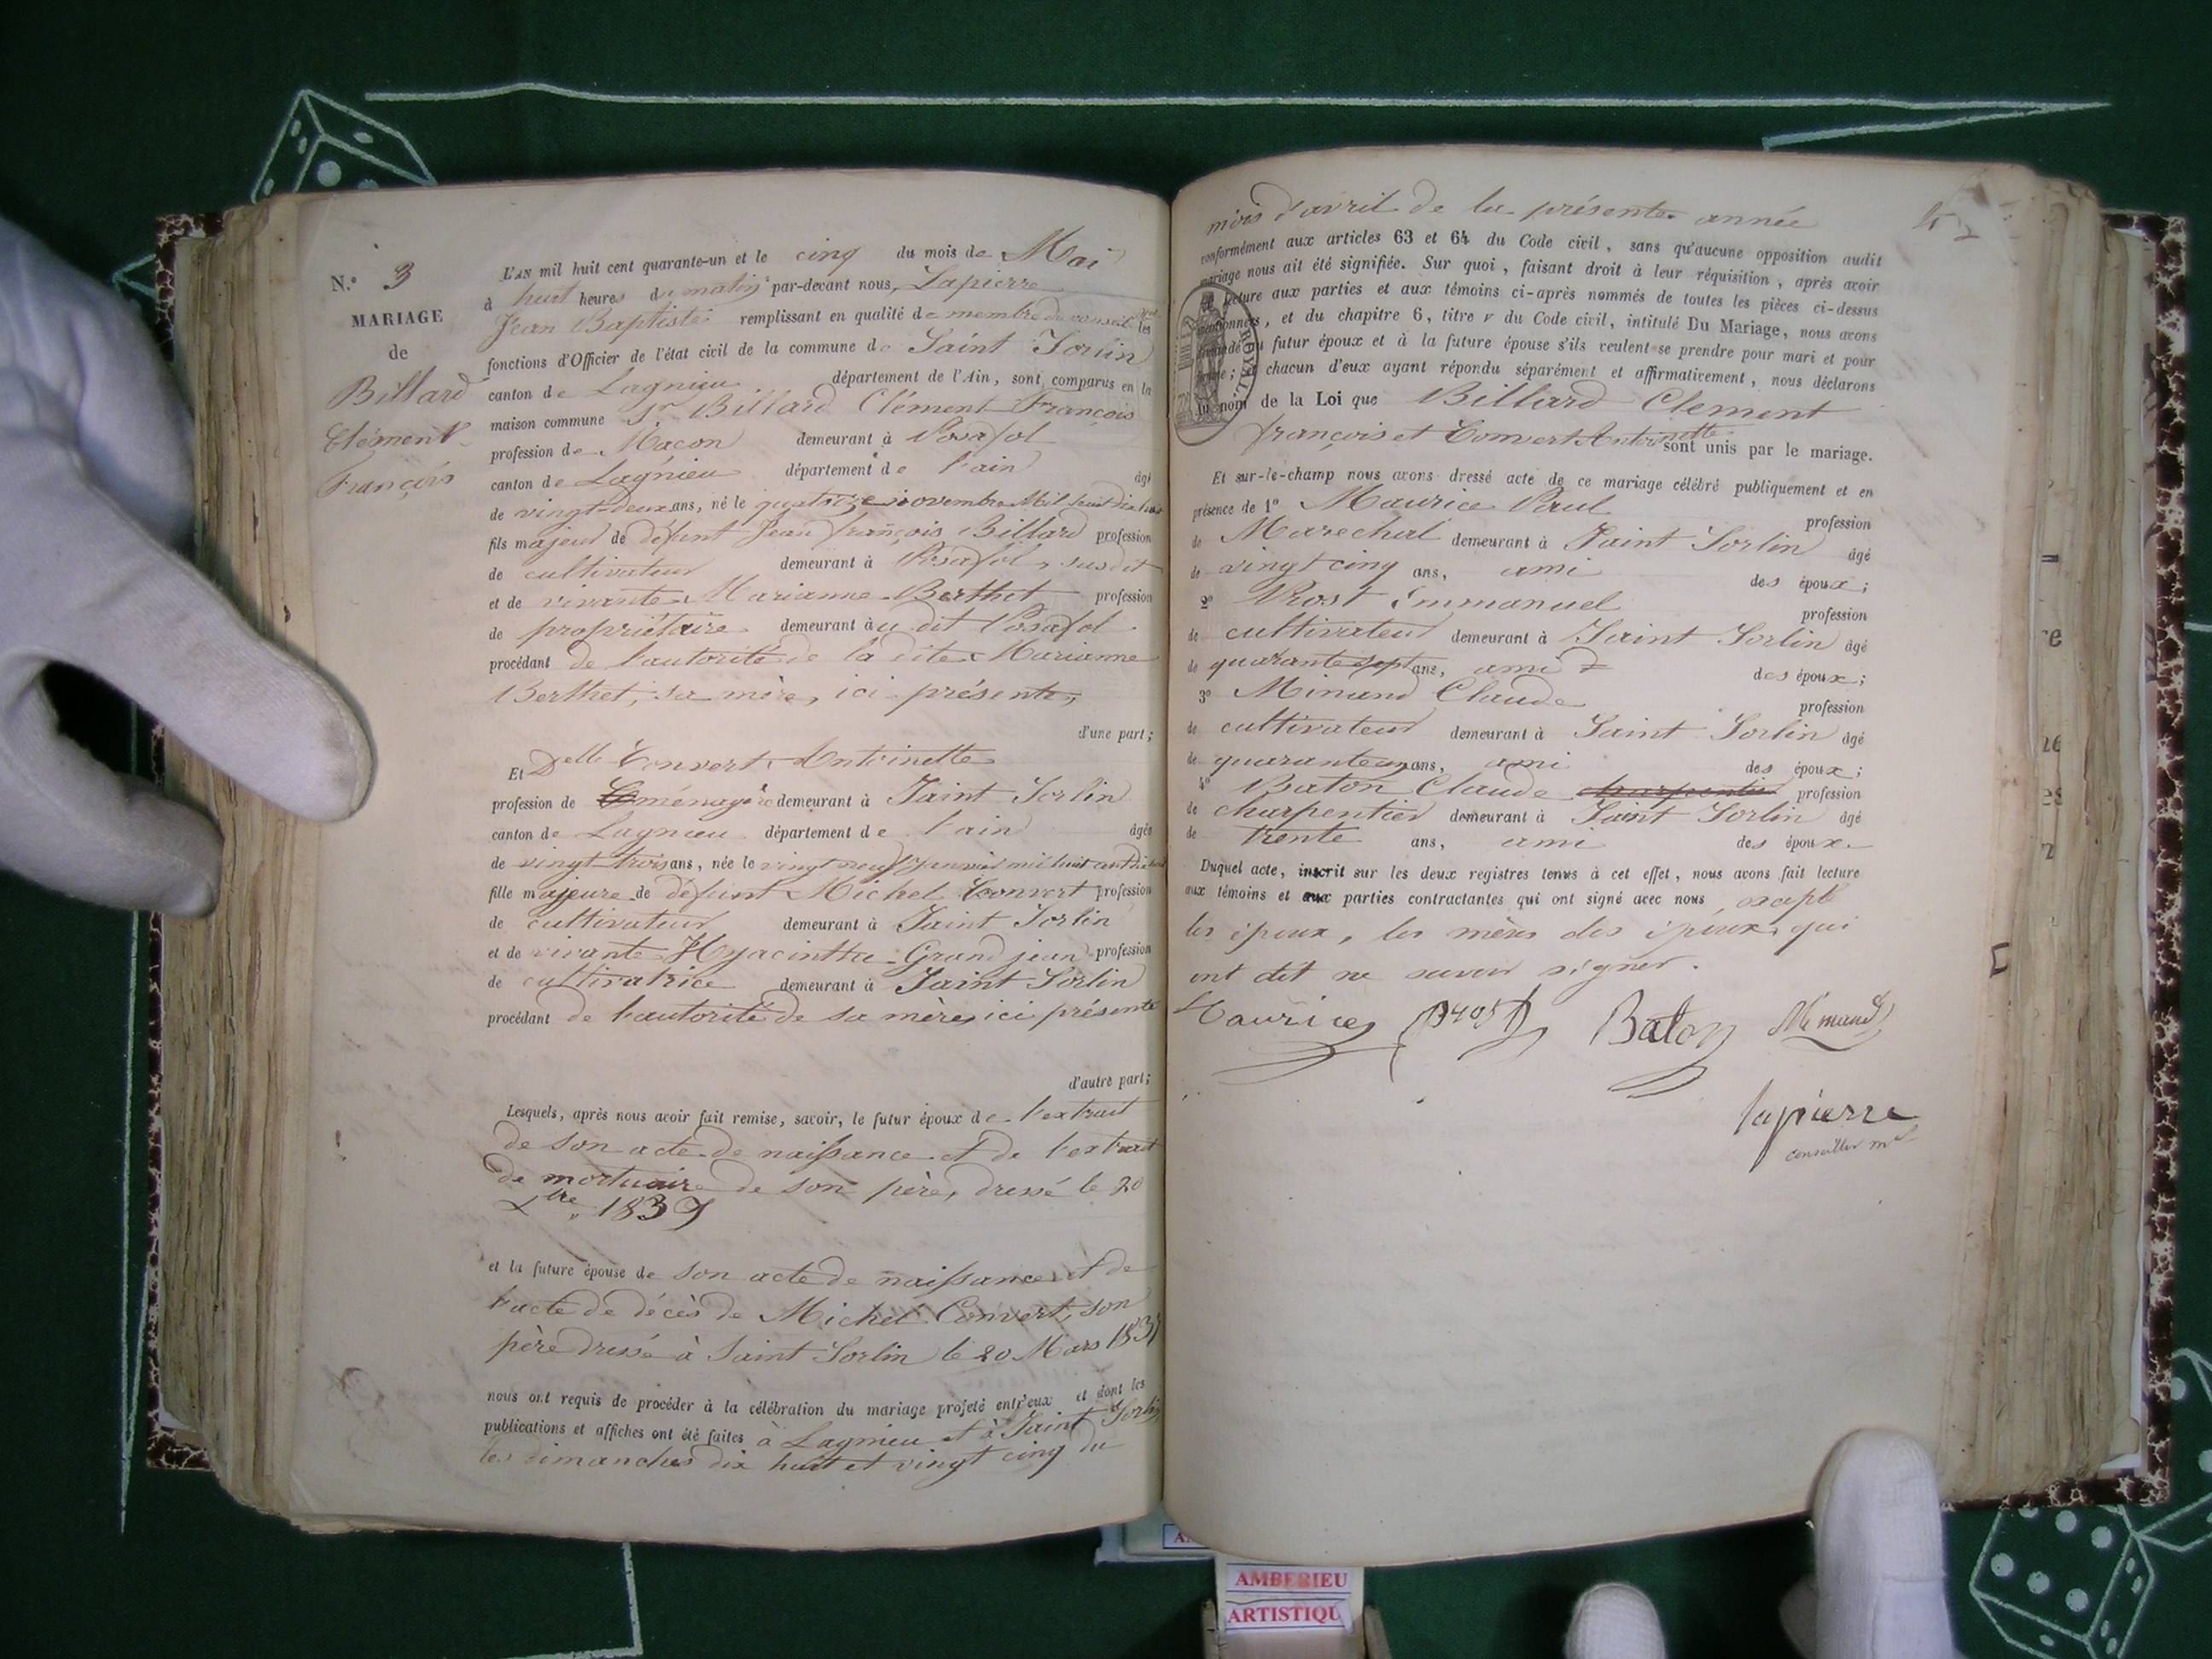 N.º 3
MARIAGE
de
Billard
Clément
François
L'AN mil huit cent quarante-un et le cinq du mois de Mai
à huit heures du matin par-devant nous, Lapierre
Jean Baptiste remplissant en qualité de membre du conseil les
fonctions d'Officier de l'état civil de la commune de Saint Sorlin
canton de Lagnieu, département de l'Ain, sont comparus en la
maison commune Sr Billard Clément François
profession de Macon demeurant à Posafol
canton de Lagnieu département de l'ain âgé
de vingt-deux ans, né le quatorze novembre Mil huit
fils majeur de défunt Jean françois Billard profession
de cultivateur demeurant à Posafol, susdit
et de vivante Marianne Berthet profession
de propriétaire demeurant àu dit Posafol
procédant de l'autorité de la dite Marianne
Berthet, sa mère, ici présente,
d'une part;
Et Delle Convert Antoinette
profession de ménagère demeurant à Saint Sorlin
canton de Lagnieu département de l'ain âgée
de vingt trois ans, née le vingt neuf janvier mil huit cent
fille majeure de défunt Michel Convert profession
de cultivateur demeurant à Saint Sorlin
et de vivante Hyacinthe Grandjean profession
de cultivatrice demeurant à Saint Sorlin
procédant de l'autorité de sa mère, ici présente
d'autre part;
Lesquels, après nous avoir fait remise, savoir, le futur époux de l'extrait
de son acte de naissance et de l'extrait
de mortuaire de son père, dressé le 20
Xbre 1837
et la future épouse de son acte de naissance et de
l'acte de décès de Michel Convert, son
père dressé à Saint Sorlin le 20 Mars
nous ont requis de procéder à la célébration du mariage projeté entr'eux et dont les
publications et affiches ont été faites à Lagnieu et à Saint Sorlin
les dimanches dix huit et vingt cinq du
mois d'avril de la présente année
conformément aux articles 63 et 64 du Code civil, sans qu'aucune opposition audit
mariage nous ait été signifiée. Sur quoi, faisant droit à leur réquisition, après avoir
lecture aux parties et aux témoins ci-après nommés de toutes les pièces ci-dessus
mentionnées, et du chapitre 6, titre v du Code civil, intitulé Du Mariage, nous avons
demandé au futur époux et à la future épouse s'ils veulent se prendre pour mari et pour
femme; chacun d'eux ayant répondu séparément et affirmativement, nous déclarons
au nom de la Loi que Billard Clement
françois et Convert Antoinette sont unis par le mariage.
ROYAL
Et sur-le-champ nous avons dressé acte de ce mariage célébré publiquement et en
présence de 1º Maurice Paul profession
de Marechal demeurant à Saint Sorlin âgé
de vingt cinq ans, ami des époux;
2º Prost Emmanuel profession
de cultivateur demeurant à Saint Sorlin âgé
de quarante sept ans, ami des époux;
3º Minand Claude profession
de cultivateur demeurant à Saint Sorlin âgé
de quarante ans, ami des époux;
4º Baton Claude charpentier profession
de charpentier demeurant à Saint Sorlin âgé
de trente ans, ami des époux.
Duquel acte, inscrit sur les deux registres tenus à cet effet, nous avons fait lecture
aux témoins et aux parties contractantes qui ont signé avec nous
les époux, les mères des époux, qui
ont dit ne savoir signer.
Maurice Prost Baton Minand
lapierre
conseiller mal
AMBERIEU
ARTISTIQU